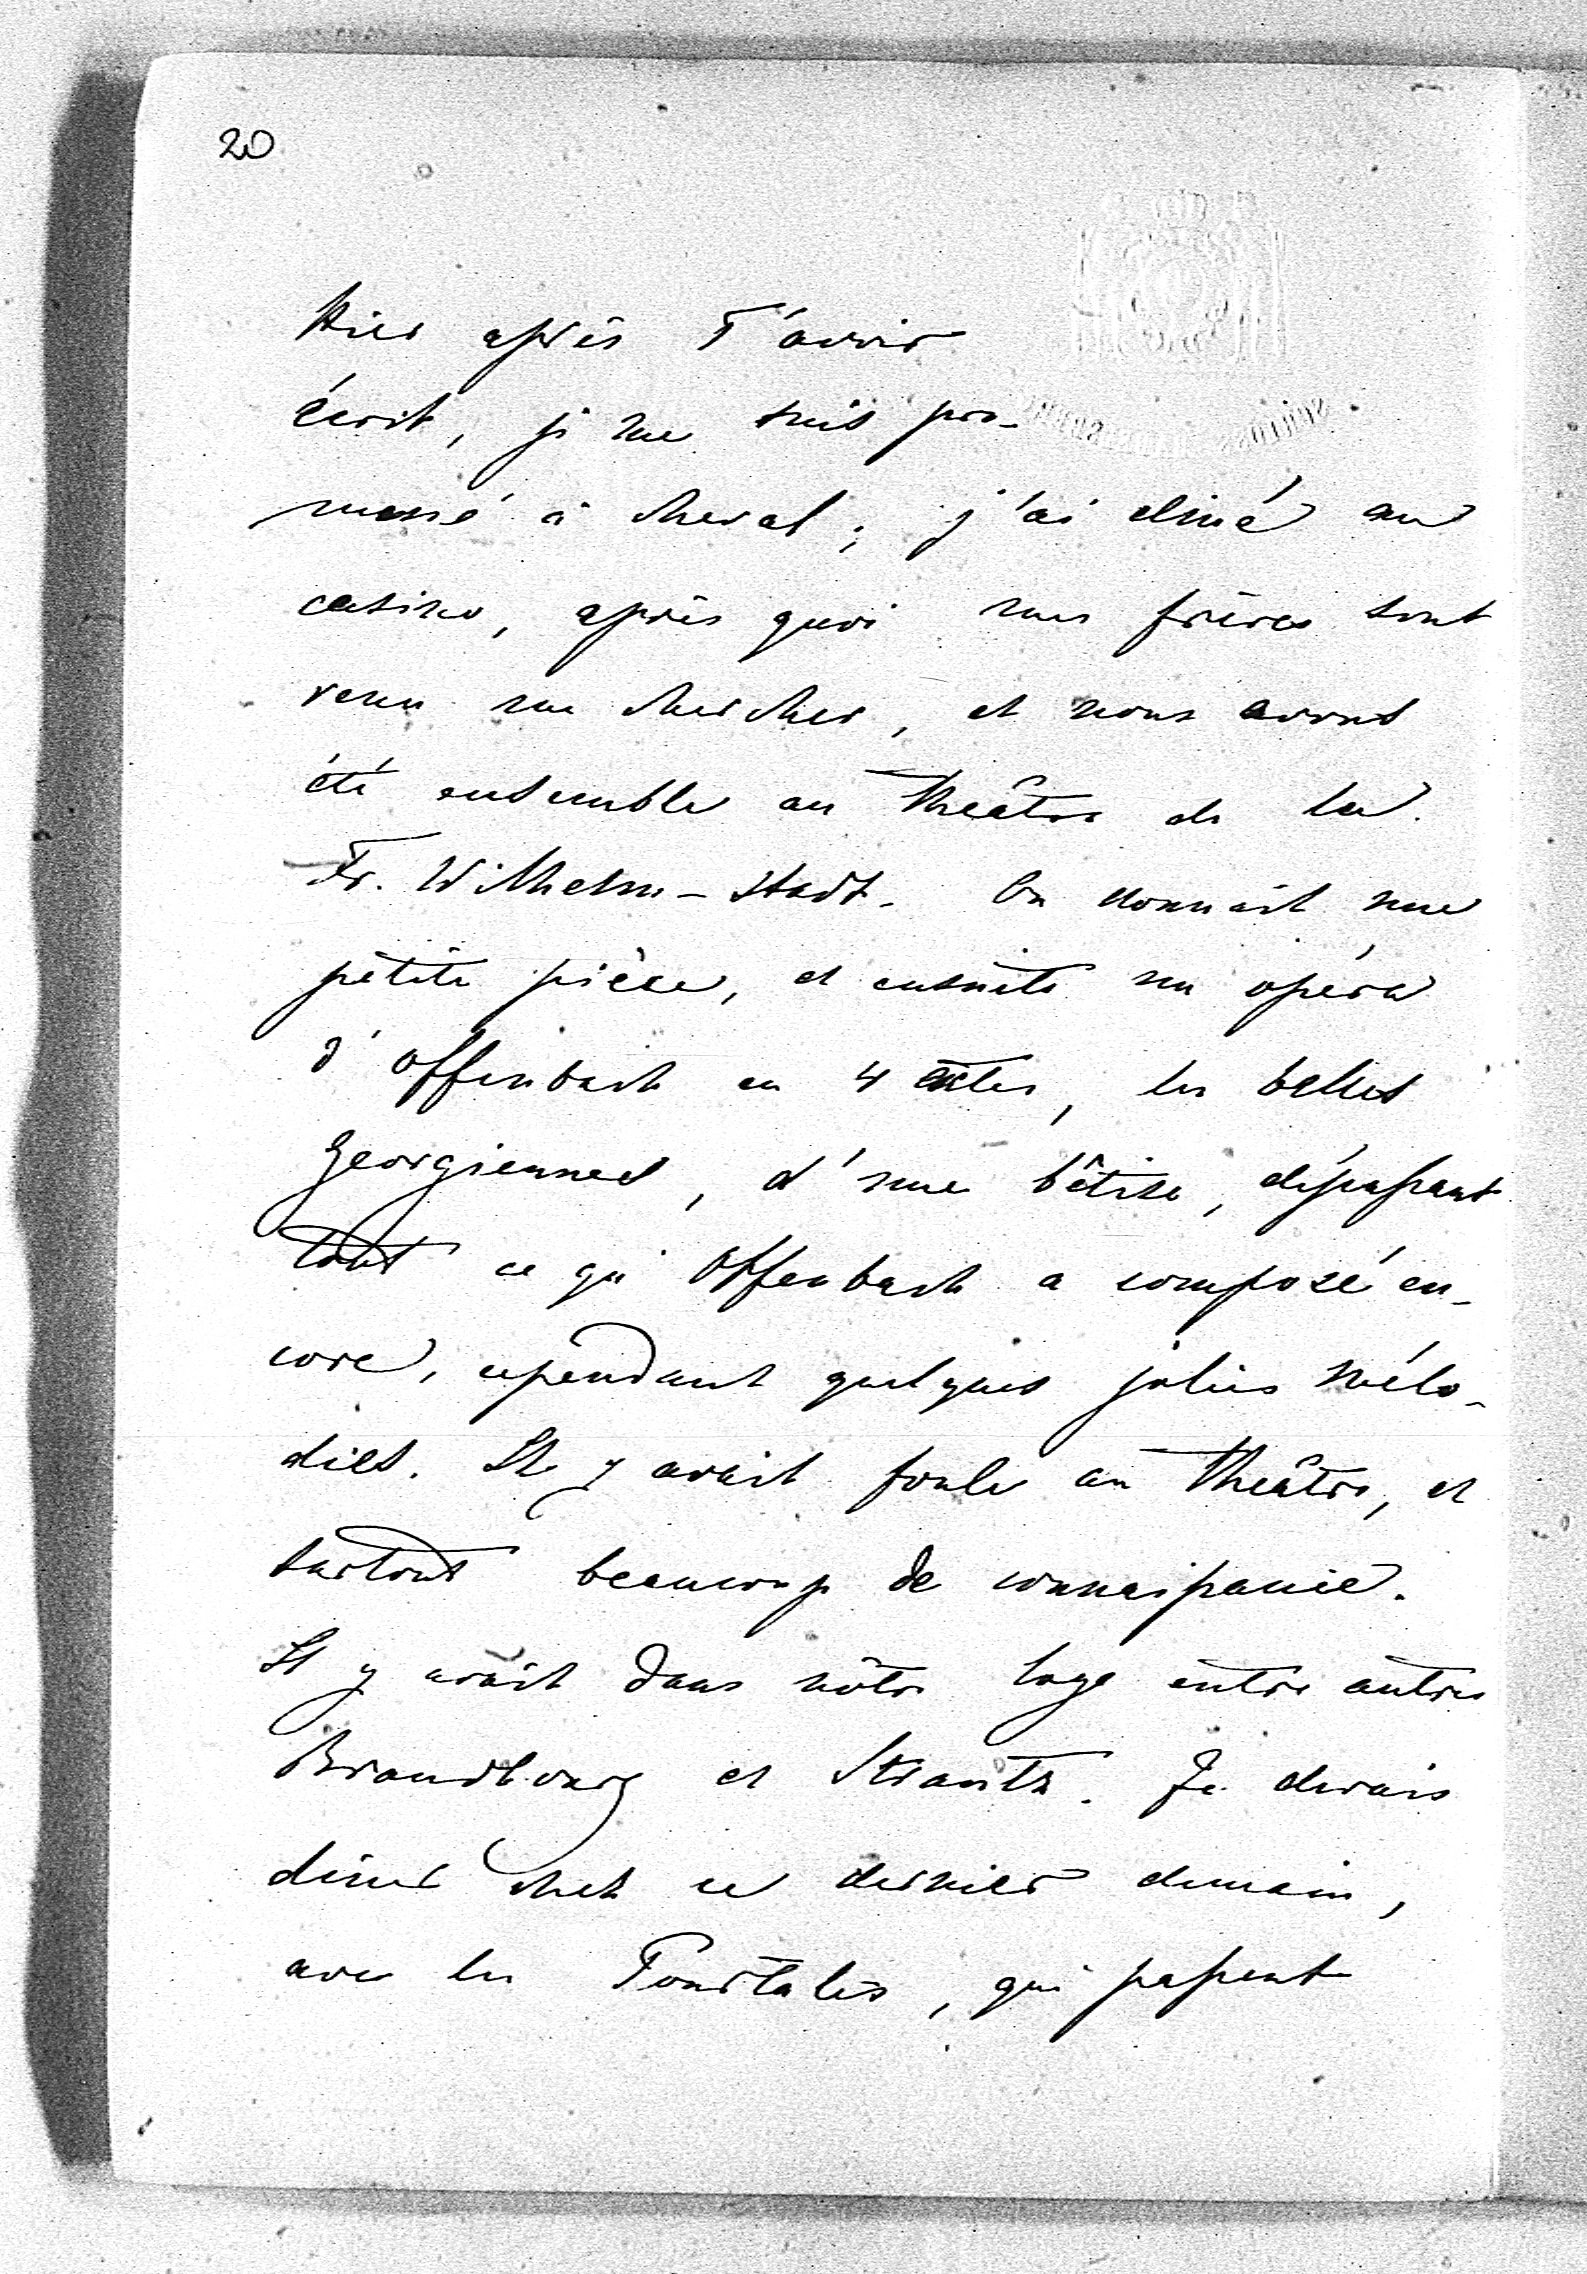 20
Hier après T'avoir
écrit, je me suis pro-
mené à cheval; j'ai diné au
casino, après quoi mes frères sont
venu me chercher, et nous avons
été ensemble au Théâtre de la
Fr. Wilhelm-Stadt. On donnait une
petite pièce, et ensuite un opéra
d'Offenbach en 4 actes, les belles
Georgiennes, d'une bêtise, dépassant
tout ce qu'Offenbach a composé en-
core, cependant quelques jolies mélo-
dies. Il y avait foule au Théâtre, et
surtout beaucoup de connaissance.
Il y avait dans nôtre loge entre autres
Brandbourg et Strantz. Je devais
diner chez ce dernier demain,
avec les Pourtalès, qui passent